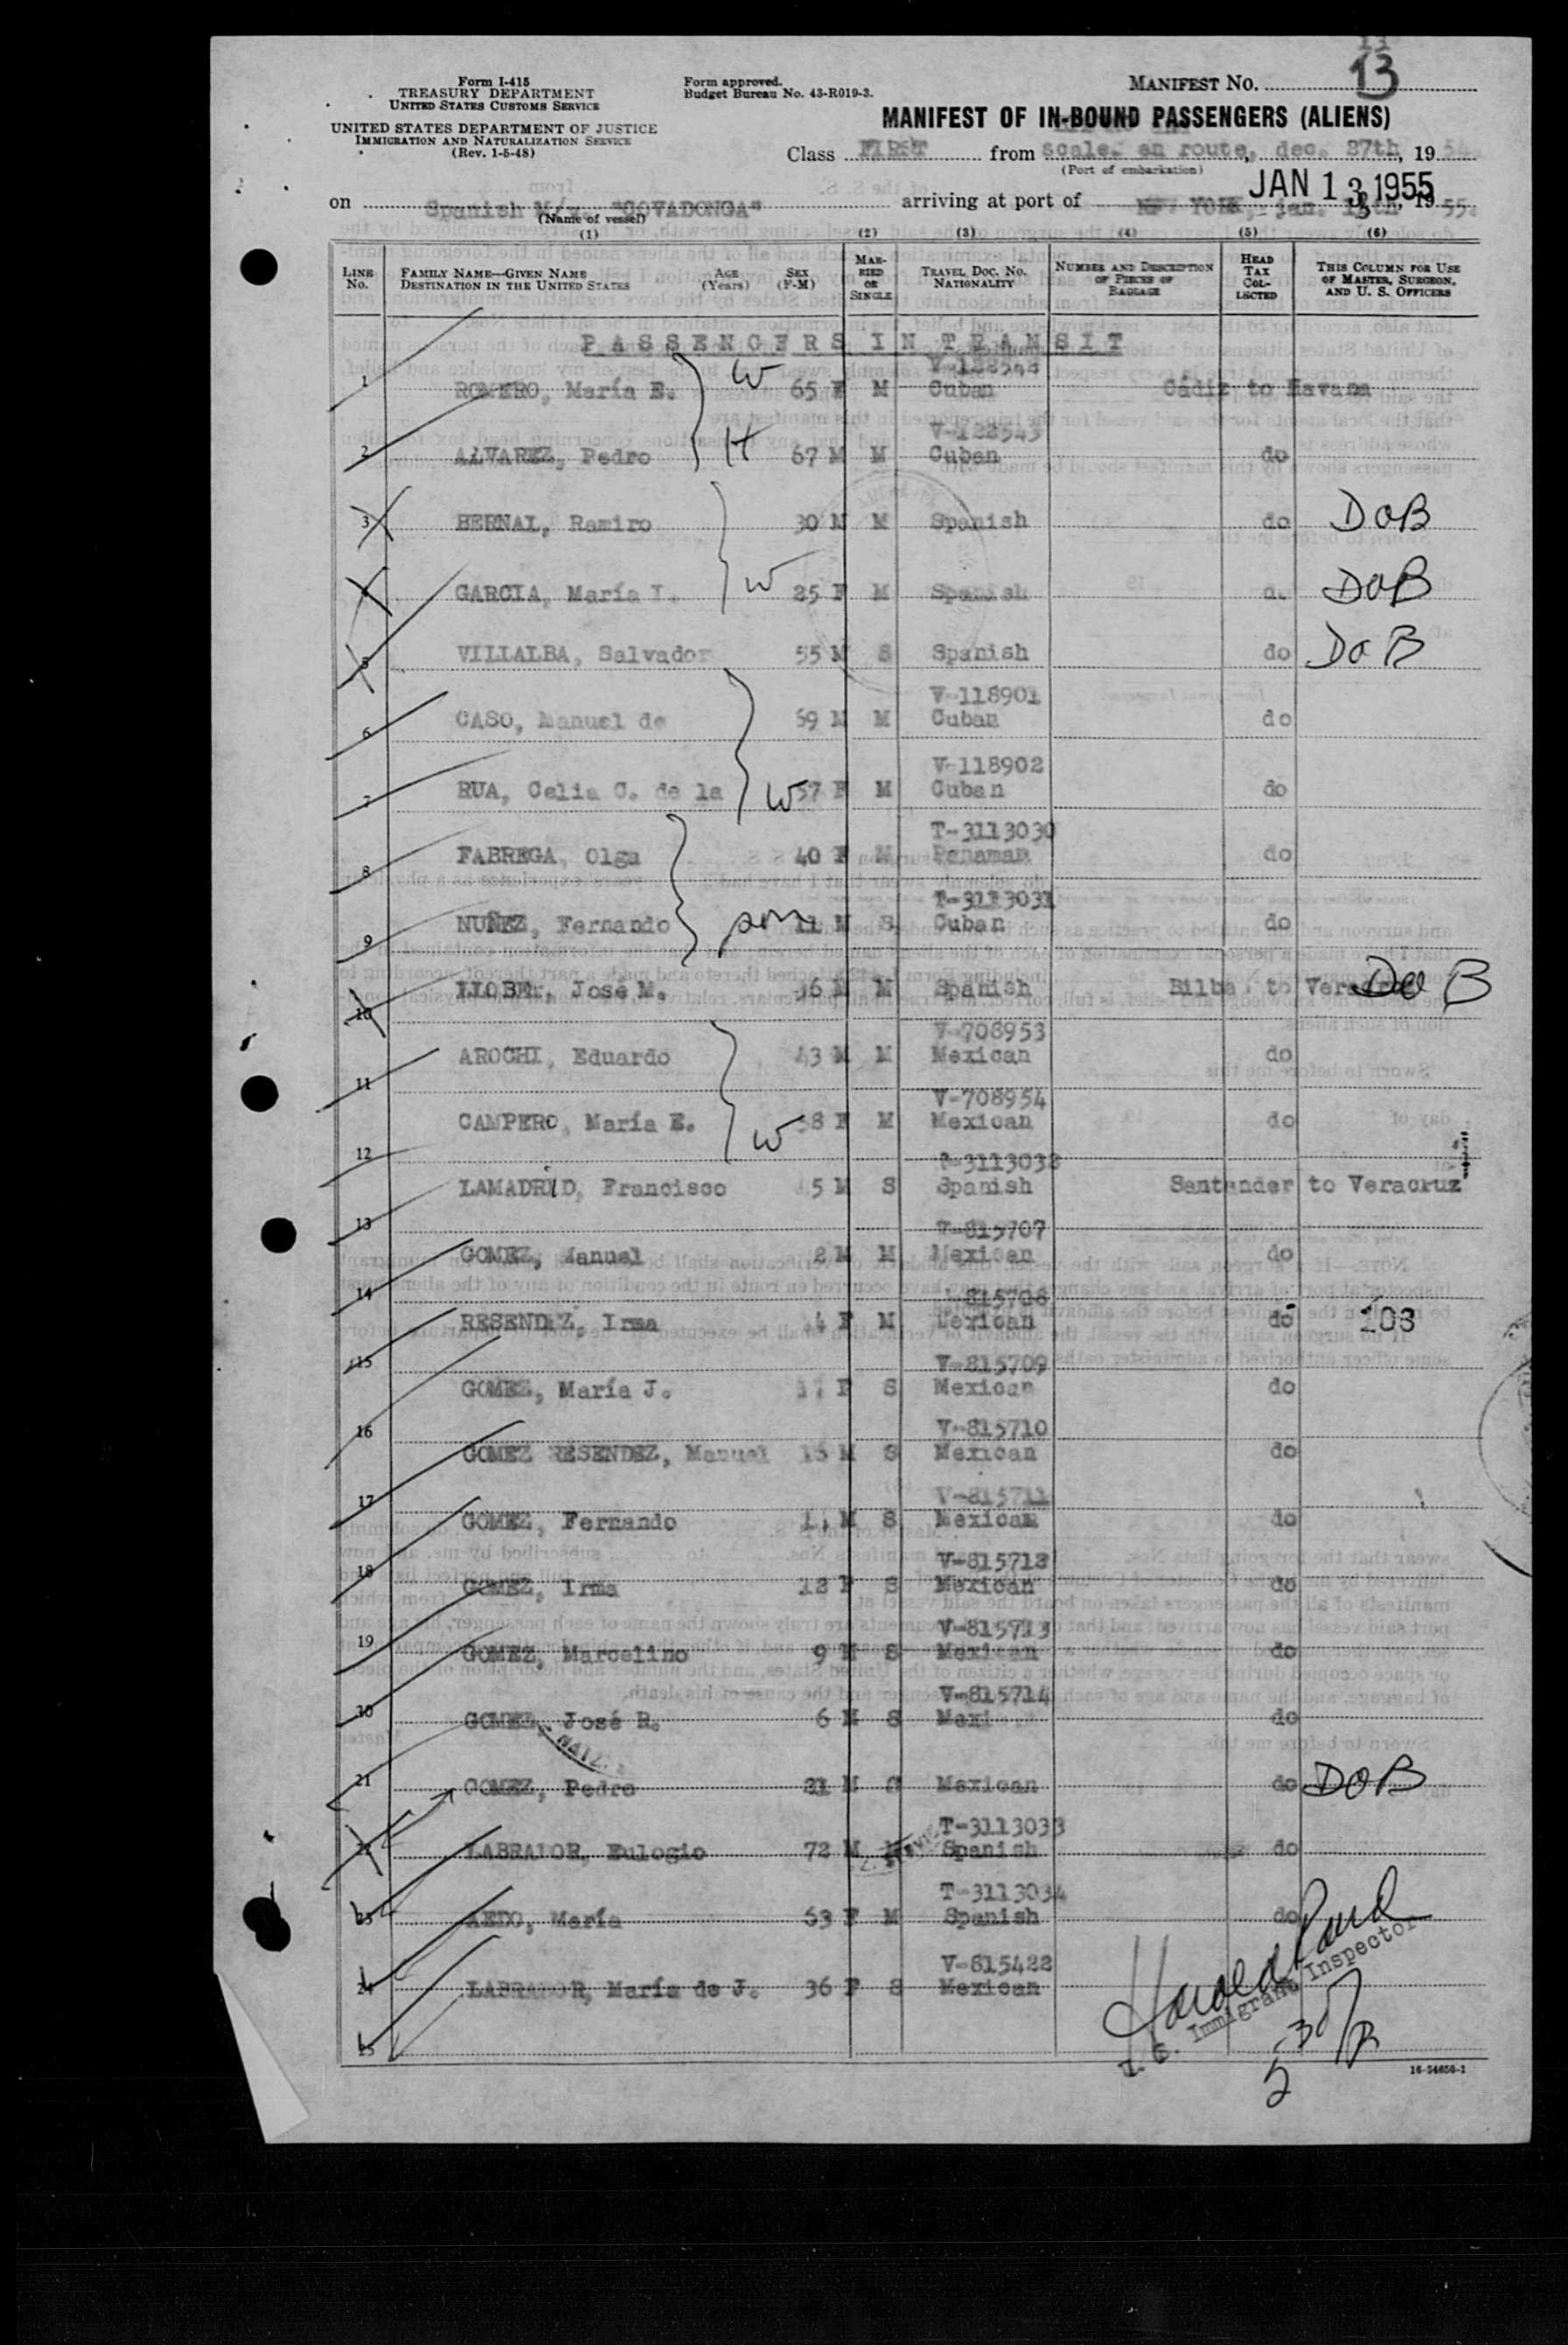 Form I-415
TREASURY DEPARTMENT
UNITED STATES CUSTOMS SERVICE
UNITED STATES DEPARTMENT OF JUSTICE
IMMIGRATION AND NATURALIZATION SERVICE
(Rev. 1-5-48)
Form approved.
Budget Bureau No. 43-R019-3.
MANIFEST NO. 13
MANIFEST OF IN-BOUND PASSENGERS (ALIENS)
Class FIRST from scale. en route, dec. 27th, 19 54.
(Port of embarkation)
on Spanish M/v. "COVADONGA" arriving at port of YORK, jan. 19 55.
JAN 13 1955
(Name of vessel)
(1) (2) (3) (4) (5) (6)
LINE NO. FAMILY NAME—GIVEN NAME DESTINATION IN THE UNITED STATES AGE (Years) SEX (F-M) MARRIED OR SINGLE TRAVEL DOC. NO. NATIONALITY NUMBER AND DESCRIPTION OF PIECES OF BAGGAGE HEAD TAX COLLECTED THIS COLUMN FOR USE OF MASTER, SURGEON, AND U. S. OFFICERS
PASSENGERS IN TRANSIT
1 ROMERO, María E. W 65 F M Cuban Cádiz to Havana
V-122543
2 ALVAREZ, Pedro H 67 M M Cuban do
3 BERNAL, Ramiro 30 M M Spanish do DOB
4 GARCIA, María I. W 25 F M Spanish DOB
5 VILLALBA, Salvador 55 M S Spanish do DOB
V-118901
6 CASO, Manuel de 59 M M Cuban do
V-118902
7 RUA, Celia C. de la W 57 F M Cuban do
T-3113030
8 FABREGA, Olga 40 F M Panaman do
T-3113031
9 NUÑEZ, Fernando 11 M S Cuban do
10 LLOBET, José M. M M Spanish Bilbao to Veracruz DOB
V-708953
11 AROCHI, Eduardo 43 M M Mexican do
V-708954
12 CAMPERO, María E. W F M Mexican do
13 LAMADRID, Francisco M S Spanish Santander to Veracruz
V-815707
14 GOMEZ, Manuel M M Mexican do
15 RESENDEZ, Irma F M Mexican do 203
V-815709
16 GOMEZ, María J. F S Mexican do
V-815710
17 GOMEZ RESENDEZ, Manuel M S Mexican do
V-815711
18 GOMEZ, Fernando M S Mexican do
V-815712
19 GOMEZ, Irma 12 F S Mexican do
V-815713
GOMEZ, Marcelino 9 M S Mexican do
V-815714
GOMEZ, José R. 6 M S Mexi do
21 GOMEZ, Pedro 21 M S Mexican do DOB
T-3113033
LABRADOR, Eulogio 72 M M Spanish do
T-3113034
23 AEDO, María 63 F M Spanish do
V-815422
24 LABRADOR, María de J. 36 F S Mexican
25
U. S. Immigrant Inspector
16-54650-1